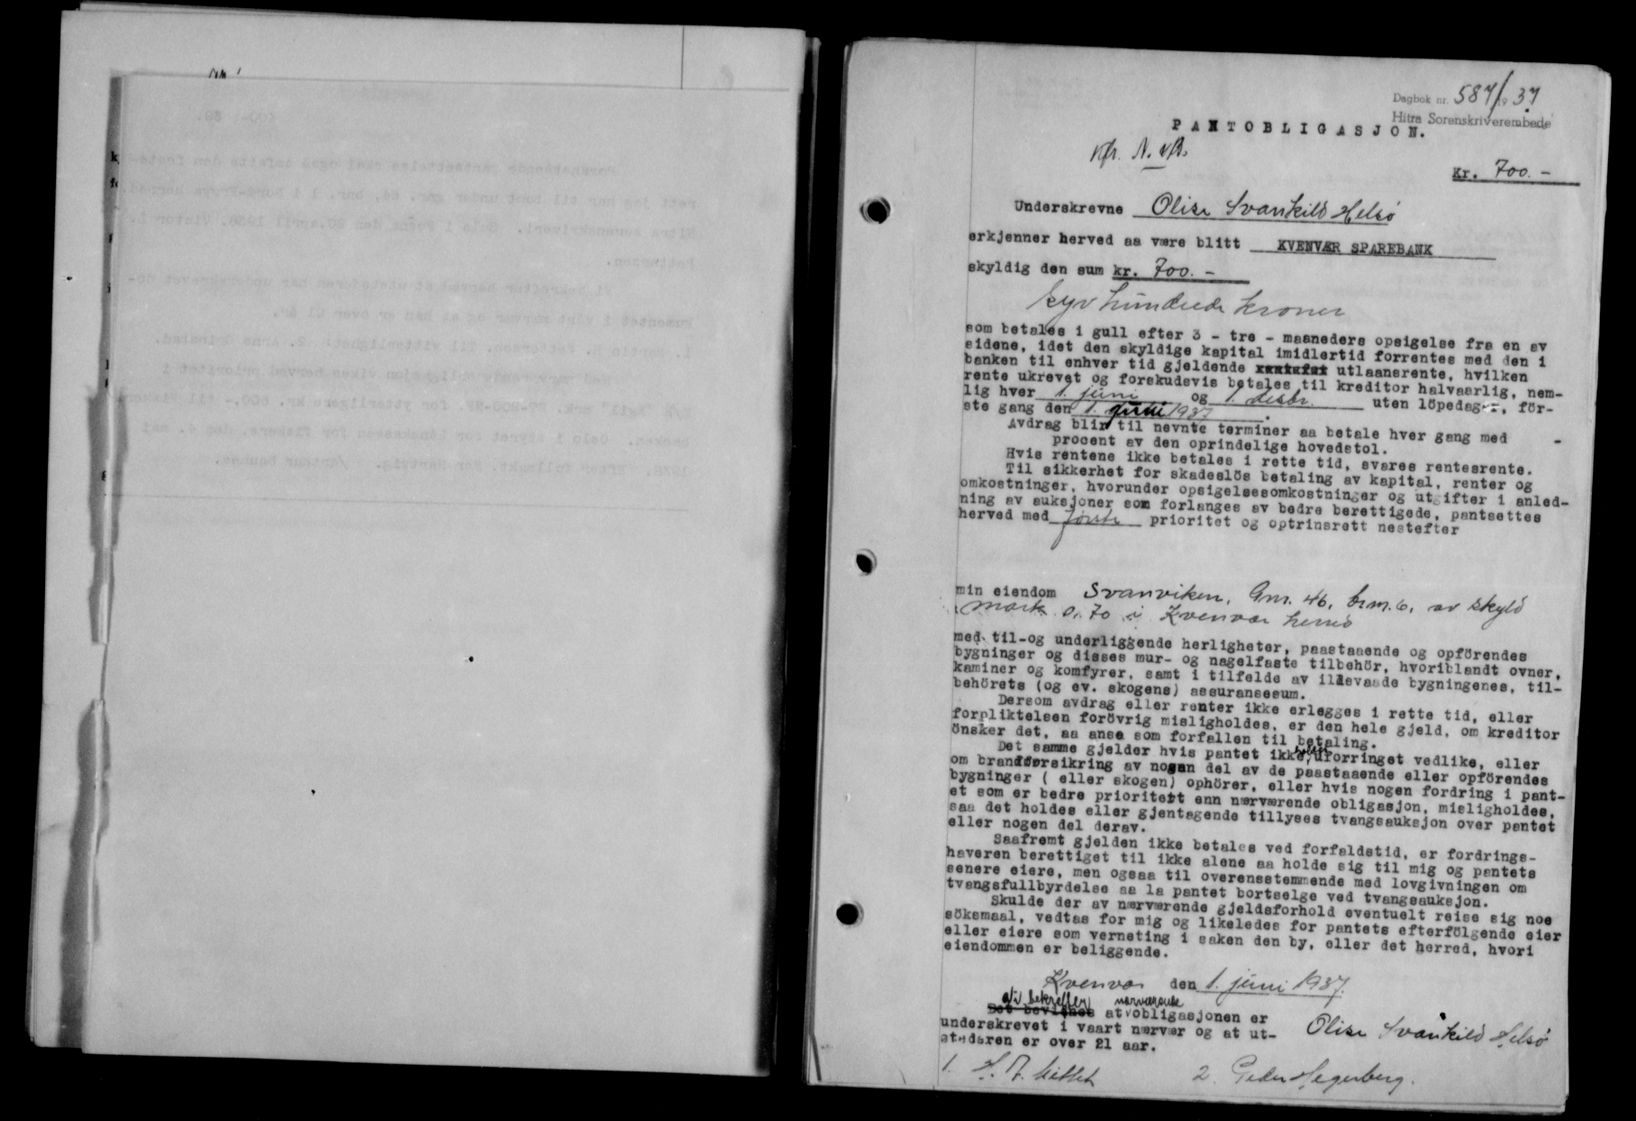 Dagbok nr. 587/1937
Hitra Sorenskriverembede
PANTOBLIGASJON.
Kr. 700.-
Underskrevne Olise Svankild Helsö
erkjenner herved aa være blitt KVENVÆR SPAREBANK
skyldig den sum kr. 700.-
syv hundrede kroner
som betales i gull efter 3 - tre - maaneders opsigelse fra en av
sidene, idet den skyldige kapital imidlertid forrentes med den i
banken til enhver tid gjeldende utlaansrente, hvilken
rente ukrevet og forskudsvis betales til kreditor halvaarlig, nem-
lig hver 1. juni og 1. desbr. uten löpedager, för-
ste gang den 1. juni 1937.
Avdrag blir til nevnte terminer aa betale hver gang med -
procent av den oprindelige hovedstol.
Hvis rentene ikke betales i rette tid, svares rentesrente.
Til sikkerhet for skadeslös betaling av kapital, renter og
omkostninger, hvorunder opsigelsesomkostninger og utgifter i anled-
ning av auksjoner som forlanges av bedre berettigede, pantsettes
herved med första prioritet og optrinsrett nestefter
min eiendom Svanviken, Gnr. 46, brn. 6, av skyld
mark 0.70 i Kvenvær herred
med til-og underliggende herligheter, paastaaende og opförendes
bygninger og disses mur- og nagelfaste tilbehör, hvoriblandt ovner,
kaminer og komfyrer, samt i tilfelde av ildsvaade bygningenes, til-
behörets (og ev. skogens) assuransesum.
Dersom avdrag eller renter ikke erlegges i rette tid, eller
forpliktelsen forövrig misligholdes, er den hele gjeld, om kreditor
önsker det, aa anse som forfallen til betaling.
Det samme gjelder hvis pantet ikke holdes uforringet vedlike, eller
om brandforsikring av nogen del av de paastaaende eller opförendes
bygninger ( eller skogen) ophörer, eller hvis nogen fordring i pant-
et som er bedre prioritert enn nærværende obligasjon, misligholdes,
saa det holdes eller gjentagende tillyses tvangsauksjon over pantet
eller nogen del derav.
Saafremt gjelden ikke betales ved forfaldstid, er fordrings-
haveren berettiget til ikke alene aa holde sig til mig og pantets
senere eiere, men ogsaa til overensstemmende med lovgivningen om
tvangsfullbyrdelse aa la pantet bortselge ved tvangsauksjon.
Skulde der av nærværende gjeldsforhold eventuelt reise sig noe
söksmaal, vedtas for mig og likeledes for pantets efterfölgende eier
eller eiere som verneting i saken den by, eller det herred, hvori
eiendommen er beliggende.
Kvenvær den 1. juni 1937.
Vi bekrefter nærværende
Det bevidnes at obligasjonen er
underskrevet i vaart nærvær og at ut-
stederen er over 21 aar.
Olise Svankild Helsö
1. H. 2. Peder Hegerberg.